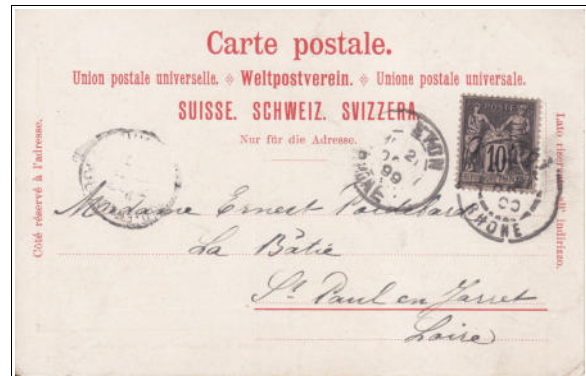 Carte postale.
Union postale universelle. Weltpostverein. Unione postale universale.
SUISSE. SCHWEIZ. SVIZZERA.
Nur für die Adresse.
Côté réservé à l'adresse.
Lato riservato all' indirizzo.
POSTE
10
LYON
99
RHONE
RHONE
Madame Ernest
La Bâtie
St Paul en Jarret
Loire